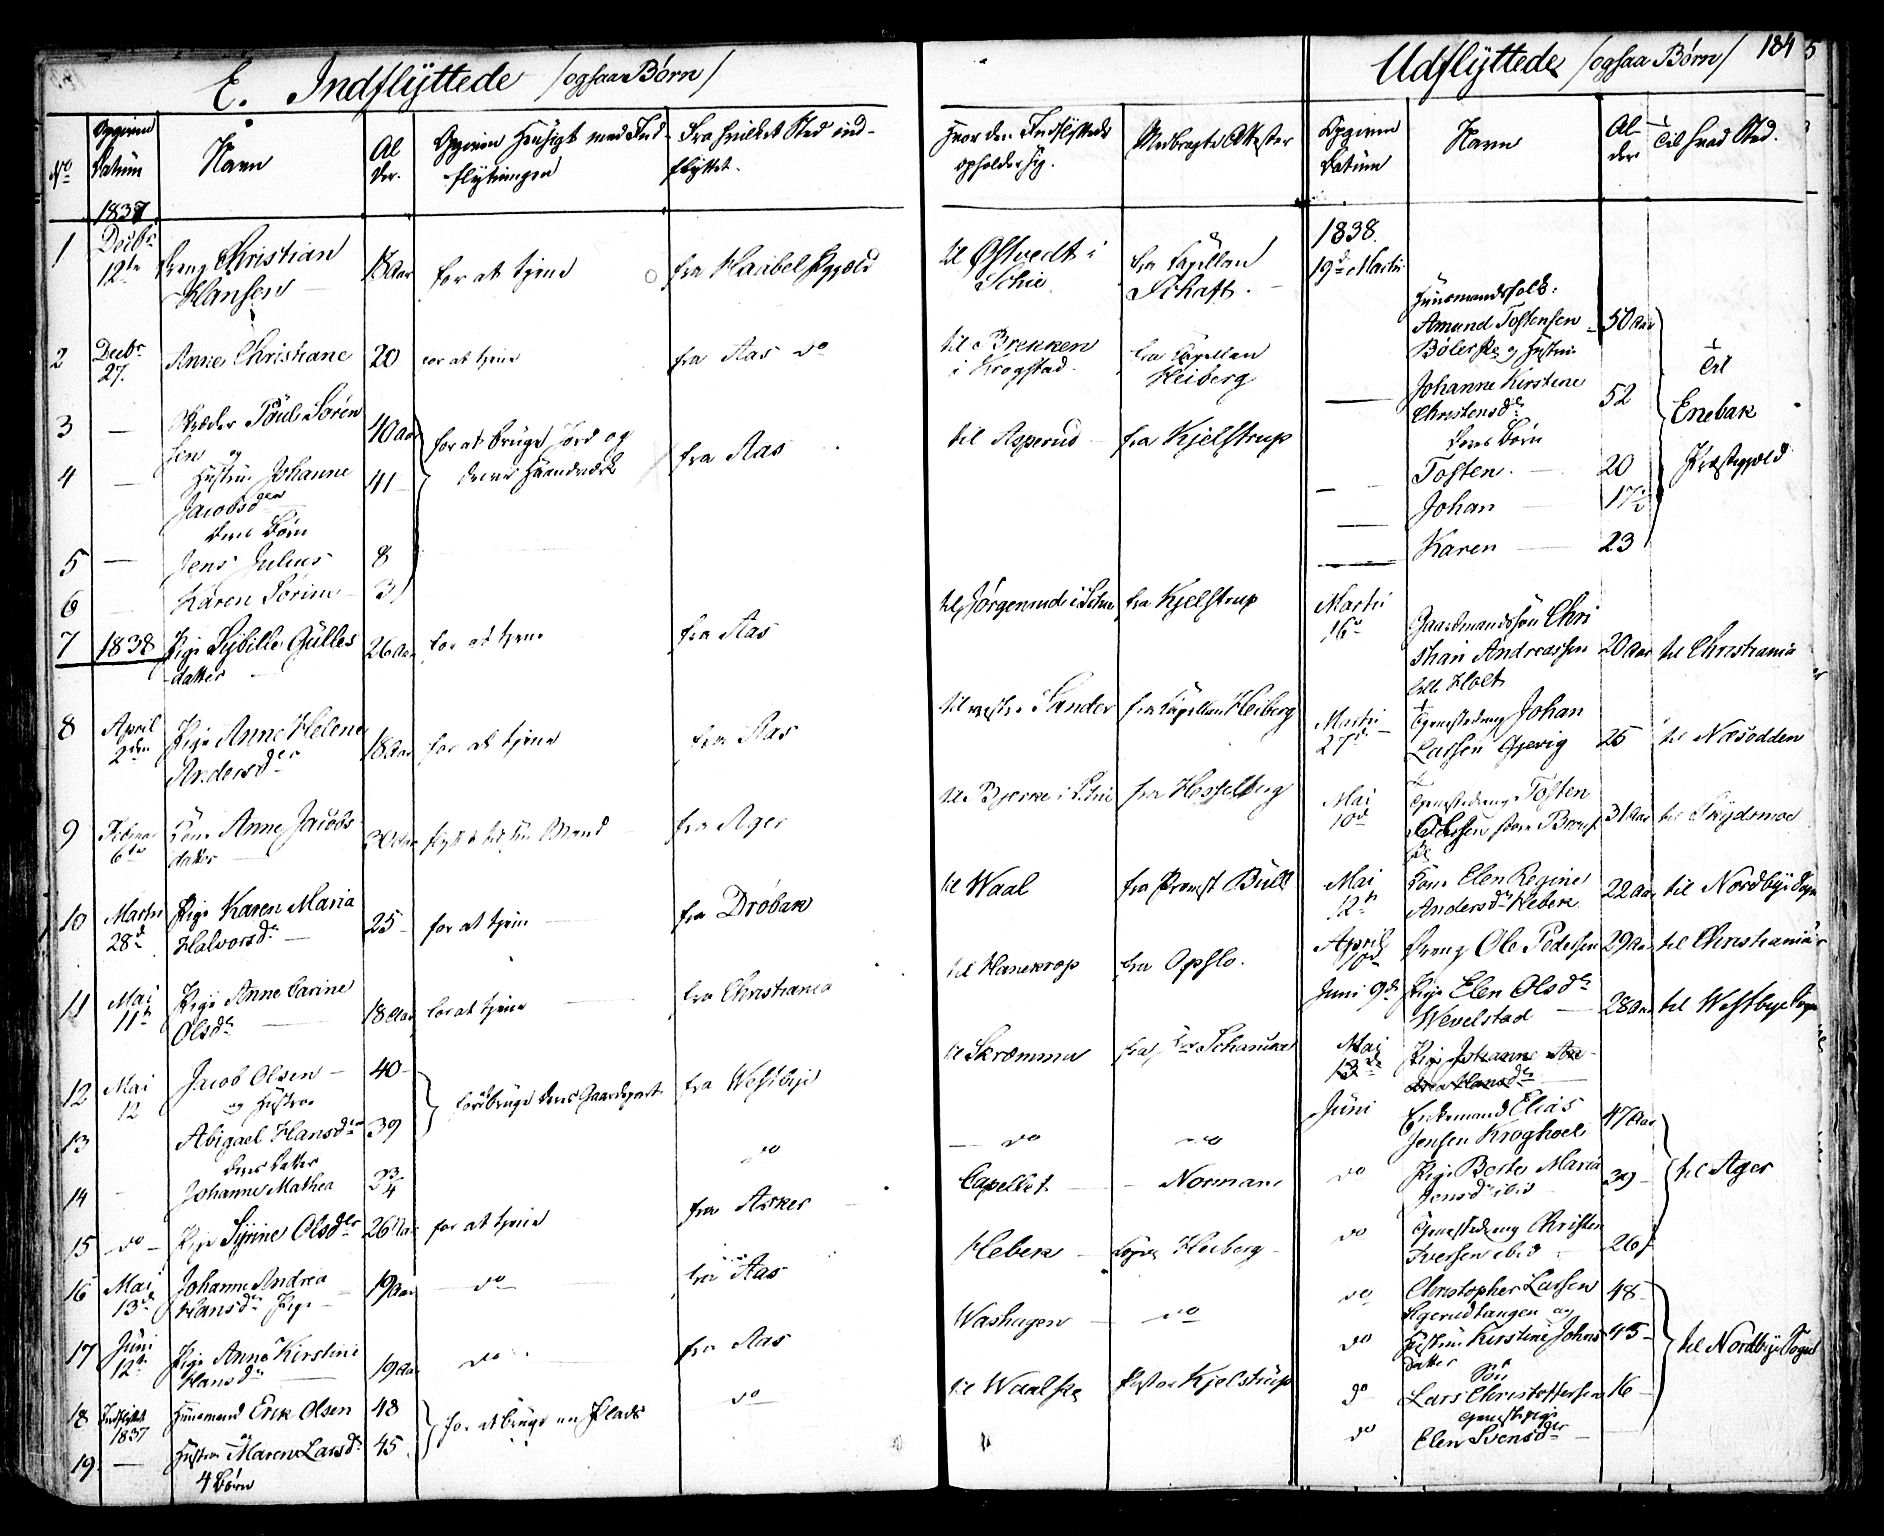 E. Indflyttede (ogsaa Børn)
No
Opgiven
Datum
Navn
Al
der.
Opgiven Hensigt med Ind-
flytningen
Fra hvilket Sted ind-
flyttet.
1837
1
Decbr
12te
Dreng Christian
Hansen
18 Aar
for at tjene
fra Haabel Pgjæld
2
Decbr
27.
Anne Christiane
20
for at tjene
fra Aas do
3
—
Sørensen
og
40 Aar
for at bruge Jord og
deres Haandværk
fra Aas
4
—
Hustru Johanne
Jacobsdtr
41
deres Børn
5
—
Jens Julius
8
6
—
Karen Sørine
3
7
1838
Pige Sybille Gulles
datter
26 Aar
for at tjene
fra Aas
8
April
2den
Pige Anne Helene
Andersdtr
18 Aar
for at tjene
fra Aas
9
Februar
6te
Kone Anne Jacobs
datter
30 Aar
flyttet til sin Mand
fra Ager
10
Martii
28d
Pige Karen Maria
Halvorsdr
25
for at tjene
fra Drøbak
11
Mai
11te
Pige Anne Carine
Olsdr
18 Aar
for at tjene
fra Christiania
12
Mai
12
Jacob Olsen
og Hustru
40
for at bruge deres Gaardepart
fra Westbye
13
Abigael Hansdtr
39
do
deres Datter
14
Johanne Mathea
3/4
fra Asker
15
do
Pige Syrine Olsdtr
26 Aar
for at tjene
16
Mai
13de
Johanne Andrea
Hansdr Pige
19 Aar
do
fra Aas
17
Juni
12te
Pige Anne Kirstine
Hansdr
19 Aar
do
fra Aas
18
Indflyttet
1837
Huusmand Erik Olsen
48
for at bruge en Plads
do
19
—
Hustru Maren Larsdr
45
4 Børn
Hvor den Indflyttede
opholder sig.
Medbragte Attester
til Østvedt i
Schie
fra Capellan
Schaft.
til Brekken
i Krogstad
fra Capellan
Heiberg
til Asperud
fra Kjelstrup
til Jørgenrud i Schie
fra Kjelstrup
til vestre Sander
fra Capellan Heiberg
til Bjerke i Schie
fra Hesselberg
til Waal
fra Provst Bull
til Hanekrop
fra Opslo.
til Skrømma
do
do
Capellet
Normann
Kebeck
Capel. Heiberg
Washagen
do
til Waalske
Pastor Kjelstrup
Udflyttede (ogsaa Børn) 184
5
Opgiven
Datum
Navn
Al-
der
Til hvad Sted.
1838.
19de Martii
Huusmandsfolk:
Amund Tostensen
Bølerske og Hustru
50 Aar
—
Johanne Kirstine
Christensdr
52
deres Børn
—
Tosten
20
—
Johan
17½
—
Karen
23
Til
Enebak
Præstegjæld
Martii
16de
Gaardmandssøn Chri
stian Andreassen
lille Holt
20 Aar
til Christiania
Martii
27de
Tjenestedreng Johan
Larssen Gjevig
25
til Næsodden
Mai
10de
Tjenestedreng Tosten
31 Aar
Mai
12te
Kone Elen Regine
Andersdr Kebeck
22 Aar
til Nordbye Sogn
April
10de
Dreng Ole Pedersen
29 Aar
til Christiania
Juni 9de
Pige Elen Olsdr
Wevelstad
28 Aar
til Westbye Sogn
Mai
13de
Pige Johanne An-
drea Hansdr
Juni
Enkemand Elias
Jensen Kroghoel
47 Aar
do
Pige Berte Maria
Jensdr ibid
39
til Ager
do
Tjenestedreng Christen
Iversen ibid
26
do
Christopher Larsen
Agerudtangen og
48
do
Hustru Kirstine Johns
datter
45
til Nordbye Sogn
Søn
do
Lars Christoffersen
16
Tjenestepige
do
Elen Svensdtr